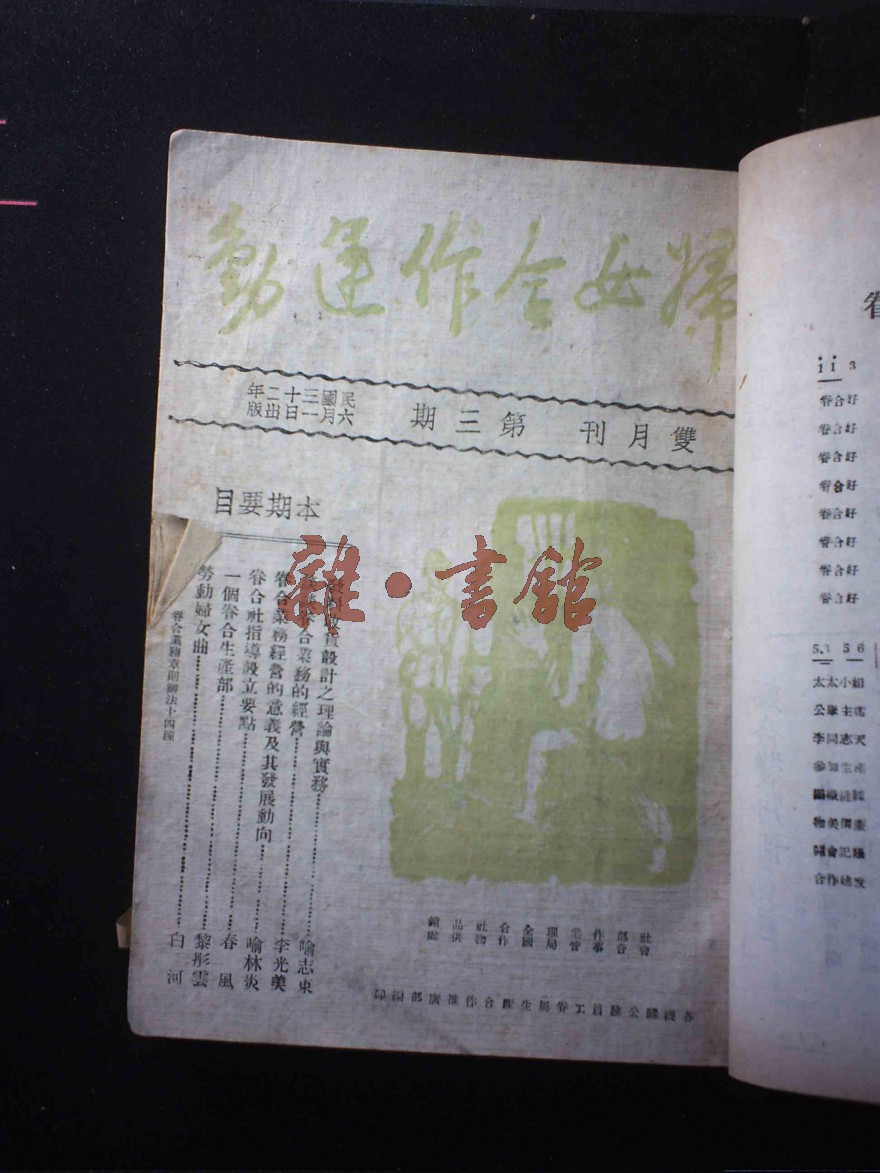 婦女合作運動
雙月刊 第三期
民國三十二年
六月一日出版
本期要目
設計之理論與實務 喻志東
合業務的經營 李光美
眷合業務經營的意義及其發展動向 喻林炎
眷合社指導設立要點 春風
一個眷合生產部 黎彤雲
勞動婦女曲 白河
眷合業務章則辦法十四種
雜·書館
社會部合作事業管理局全國合作社物品供銷處
各機關公務員工眷屬生產合作推廣部編印
i i 3
眷合好
眷合好
眷合好
眷合好
眷合好
眷合好
眷合好
眷合好
5.1 5 6
太太小姐
公舉主席
李同志天
參加生產
物美價廉
開會記錄